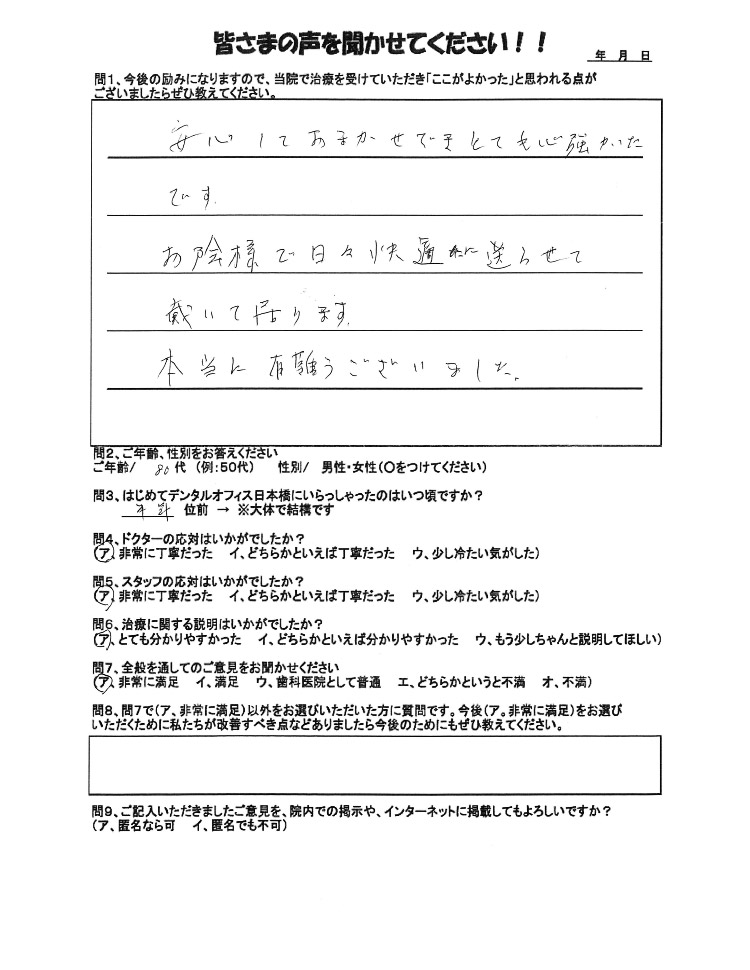 皆さまの声を聞かせてください！！
年 月 日
問１、今後の励みになりますので、当院で治療を受けていただき「ここがよかった」と思われる点が
ございましたらぜひ教えてください。
安心しておまかせできとても心強かった
です。
お陰様で日々快適に送らせて
戴いて居ります。
本当に有難うございました。
問２、ご年齢、性別をお答えください
ご年齢/ 80代 （例：50代） 性別/ 男性・女性（○をつけてください）
問３、はじめてデンタルオフィス日本橋にいらっしゃったのはいつ頃ですか？
位前 → ※大体で結構です
問４、ドクターの応対はいかがでしたか？
（ア、非常に丁寧だった イ、どちらかといえば丁寧だった ウ、少し冷たい気がした）
問５、スタッフの応対はいかがでしたか？
（ア、非常に丁寧だった イ、どちらかといえば丁寧だった ウ、少し冷たい気がした）
問６、治療に関する説明はいかがでしたか？
（ア、とても分かりやすかった イ、どちらかといえば分かりやすかった ウ、もう少しちゃんと説明してほしい）
問７、全般を通してのご意見をお聞かせください
（ア、非常に満足 イ、満足 ウ、歯科医院として普通 エ、どちらかというと不満 オ、不満）
問８、問７で（ア、非常に満足）以外をお選びいただいた方に質問です。今後（ア。非常に満足）をお選び
いただくために私たちが改善すべき点などありましたら今後のためにもぜひ教えてください。
問９、ご記入いただきましたご意見を、院内での掲示や、インターネットに掲載してもよろしいですか？
（ア、匿名なら可 イ、匿名でも不可）